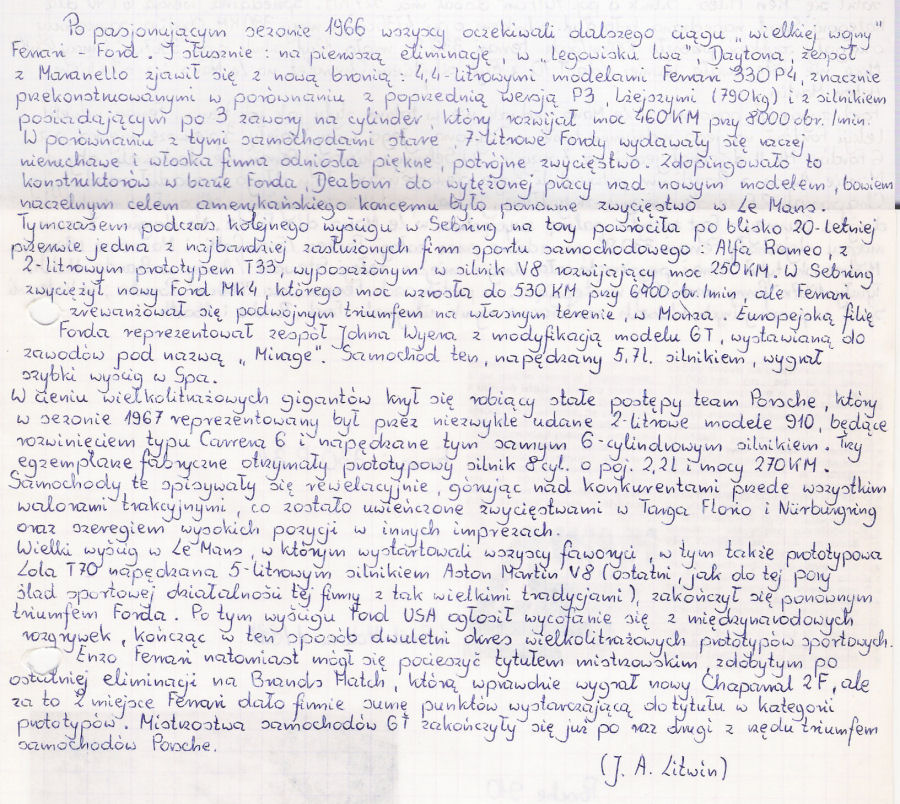 Po pasjonującym sezonie 1966 wszyscy oczekiwali dalszego ciągu „wielkiej wojny”
Ferrari - Ford. I słusznie : na pierwszą eliminację, w „legowisku lwa”, Daytona, zespół
z Maranello zjawił się z nową bronią : 4,4-litrowymi modelami Ferrari 330P4, znacznie
przekonstruowanymi w porównaniu z poprzednią wersją P3, lżejszymi (790kg) i z silnikiem
posiadającym po 3 zawory na cylinder, który rozwijał moc 460KM przy 8000 obr./min.
W porównaniu z tymi samochodami stare, 7-litrowe Fordy wydawały się raczej
nieruchawe i włoska firma odniosła piękne, potrójne zwycięstwo. Zdopingowało to
konstruktorów w bazie Forda, Deaborn do wytężonej pracy nad nowym modelem, bowiem
naczelnym celem amerykańskiego koncernu było ponowne zwycięstwo w Le Mans.
Tymczasem podczas kolejnego wyścigu w Sebring na tory powróciła po blisko 20-letniej
przerwie jedna z najbardziej zasłużonych firm sportu samochodowego : Alfa Romeo, z
2-litrowym prototypem T33, wyposażonym w silnik V8 rozwijający moc 250KM. W Sebring
zwyciężył nowy Ford Mk4, którego moc wzrosła do 530KM przy 6400obr./min, ale Ferrari
zrewanżował się podwójnym triumfem na własnym terenie, w Monza. Europejską filię
Forda reprezentował zespół Johna Wyera z modyfikacją modelu GT, wystawianą do
zawodów pod nazwą „Mirage”. Samochód ten, napędzany 5,7l. silnikiem, wygrał
szybki wyścig w Spa.
W cieniu wielkolitrażowych gigantów krył się robiący stałe postępy team Porsche, który
w sezonie 1967 reprezentowany był przez niezwykle udane 2-litrowe modele 910, będące
rozwinięciem typu Carrera 6 i napędzane tym samym 6-cylindrowym silnikiem. Trzy
egzemplarze fabryczne otrzymały prototypowy silnik 8cyl. o poj. 2,2l i mocy 270KM.
Samochody te spisywały się rewelacyjnie, górując nad konkurentami przede wszystkim
walorami trakcyjnymi, co zostało uwieńczone zwycięstwami w Targa Florio i Nürburgring
oraz szeregiem wysokich pozycji w innych imprezach.
Wielki wyścig w Le Mans, w którym wystartowali wszyscy faworyci, w tym także prototypowa
Lola T70 napędzana 5-litrowym silnikiem Aston Martin V8 (ostatni, jak do tej pory
ślad sportowej działalności tej firmy z tak wielkimi tradycjami), zakończył się ponownym
triumfem Forda. Po tym wyścigu Ford USA ogłosił wycofanie się z międzynarodowych
rozgrywek, kończąc w ten sposób dwuletni okres wielkolitrażowych prototypów sportowych.
Enzo Ferrari natomiast mógł się pocieszyć tytułem mistrzowskim, zdobytym po
ostatniej eliminacji na Brands Hatch, którą wprawdzie wygrał nowy Chaparral 2F, ale
za to 2 miejsce Ferrari dało firmie sumę punktów wystarczającą do tytułu w kategorii
prototypów. Mistrzostwa samochodów GT zakończyły się już po raz drugi z rzędu triumfem
samochodów Porsche.
(J. A. Litwin)